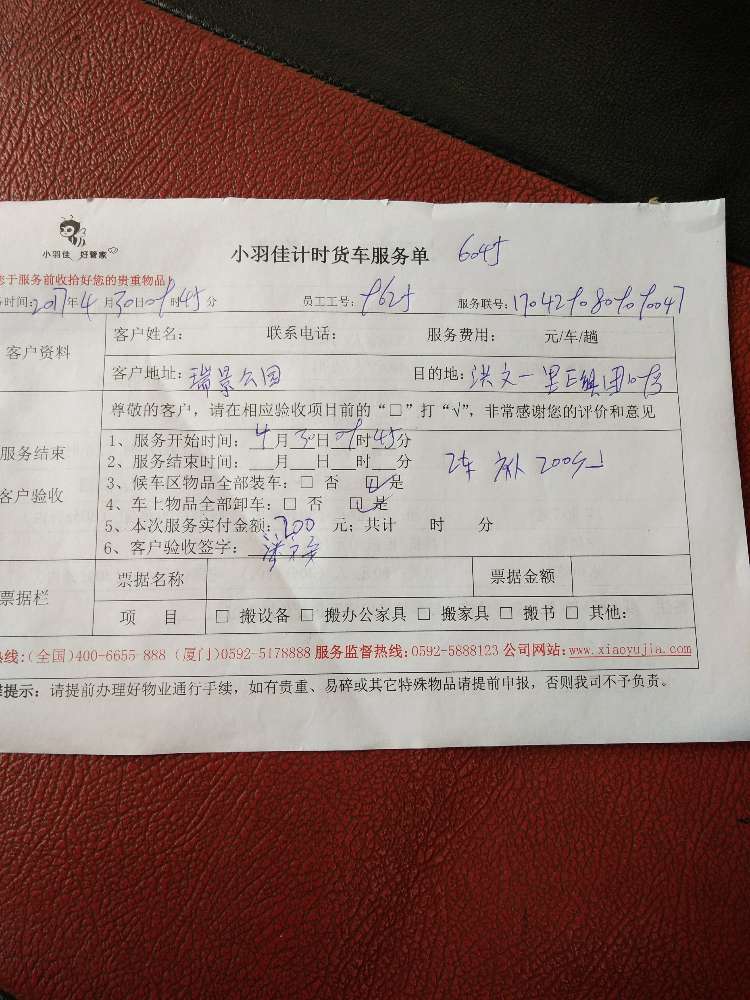 小羽佳 好管家
小羽佳计时货车服务单 6045
于服务前收拾好您的贵重物品!
时间:2017年4月30日 时45分 员工工号: 服务联号:
客户资料
客户姓名: 联系电话: 服务费用: 元/车/趟
客户地址:瑞景公园 目的地:洪文一里
尊敬的客户，请在相应验收项目前的“□”打“√”，非常感谢您的评价和意见
服务结束
客户验收
1、服务开始时间:4月30日 时45分
2、服务结束时间: 月 日 时 分
3、候车区物品全部装车:□ 否 ☑是
4、车上物品全部卸车:□ 否 ☑是
2车 补 200
5、本次服务实付金额:200 元; 共计 时 分
6、客户验收签字:
票据栏
票据名称 票据金额
项 目 □ 搬设备 □ 搬办公家具 □ 搬家具 □ 搬书 □ 其他:
线:(全国)400-6655 888 (厦门)0592-5178888 服务监督热线:0592-5888123 公司网站:www.xiaoyujia.com
提示：请提前办理好物业通行手续，如有贵重、易碎或其它特殊物品请提前申报，否则我司不予负责。